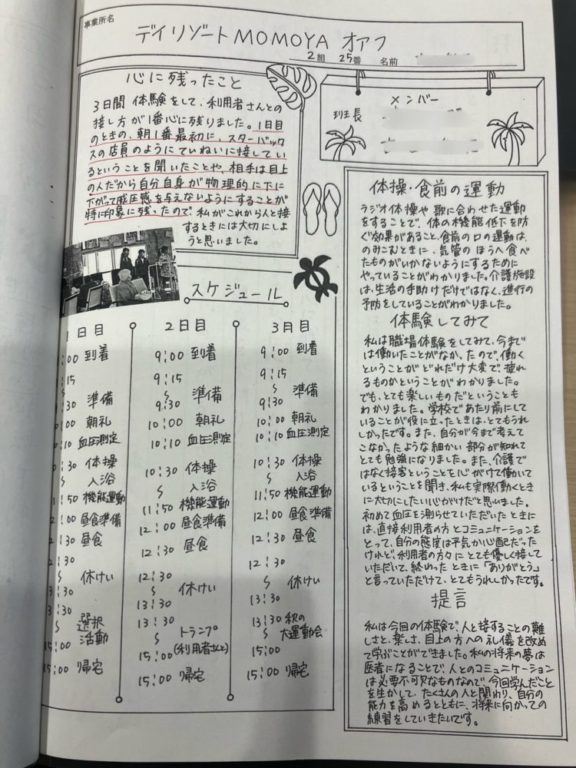 事業所名
デイリゾートMOMOYA オアフ
2組 25番 名前
心に残ったこと
3日間体験をして、利用者さんとの
接し方が1番心に残りました。1日目
のときの、朝1番最初に、スターバック
スの店員のようにていねいに接してい
るということを聞いたことや、相手は目上
の人だから自分自身が物理的に下に
下がって威圧感を与えないようにすることが
特に印象に残ったので、私がこれから人と接
するときには大切にしよ
うと思いました。
メンバー
班長
スケジュール
1日目
:00 到着
:15
〜 準備
:30
:00 朝礼
:10 血圧測定
:30 体操
〜 入浴
:50 機能運動
:00 昼食準備
:30 昼食
:30
〜 休けい
:30
:30
〜 選択
活動
:00
:00 帰宅
2日目
9:00 到着
9:15
〜 準備
9:30
10:00 朝礼
10:10 血圧測定
10:30 体操
〜 入浴
11:50 機能運動
12:00 昼食準備
12:30 昼食
12:30
〜 休けい
13:30
13:30
〜 トランプ
15:00(利用者さんと)
15:00 帰宅
3月目
9:00 到着
9:15
〜 準備
9:30
10:00 朝礼
10:10 血圧測定
10:30 体操
〜 入浴
11:50 機能運動
12:00 昼食準備
12:30 昼食
12:30
〜 休けい
13:30
13:30 秋の
〜 大運動会
15:00
15:00 帰宅
体操・食前の運動
ラジオ体操や歌に合わせた運動
をすることで、体の機能低下を防
ぐ効果があること、食前の口の運動は、
のみこむときに、気管のほうへ食べ
たものがいかないようにするために
やっていることがわかりました。介護施設
は、生活の手助けだけではなく、進行の
予防をしていることがわかりました。
体験してみて
私は職場体験をしてみて、今まで
は働いたことがなかったので、働く
ということがどれだけ大変で疲れ
るものかということがわかりました。
でも、とても楽しいものだということも
わかりました。学校であたり前にして
いることが役に立ったときは、とてもうれ
しかったです。また、自分が今まで考えて
こなかったような細かい部分が知れて
とても勉強になりました。また、介護で
はなく接客ということを心がけて働いて
いるということを聞き、私も実際働くとき
に大切にしたい心がけだと思いました。
初めて血圧を測らせていただいたときに
は、直接利用者の方とコミュニケーションを
とって、自分の態度は平気か心配だった
けれど、利用者の方々にとても優しく接して
いただいて、終わったときに「ありがとう」
と言っていただけて、とてもうれしかったです。
提言
私は今回の体験で、人と接することの難
しさと、楽しさ、目上の方への礼儀を改め
て学ぶことができました。私の将来の夢は
医者になることで、人とのコミュニケーション
は必要不可欠なものなので、今回学んだこと
を生かして、たくさんの人と関わり、自分の
能力を高めるとともに、将来に向かっての
練習をしていきたいです。